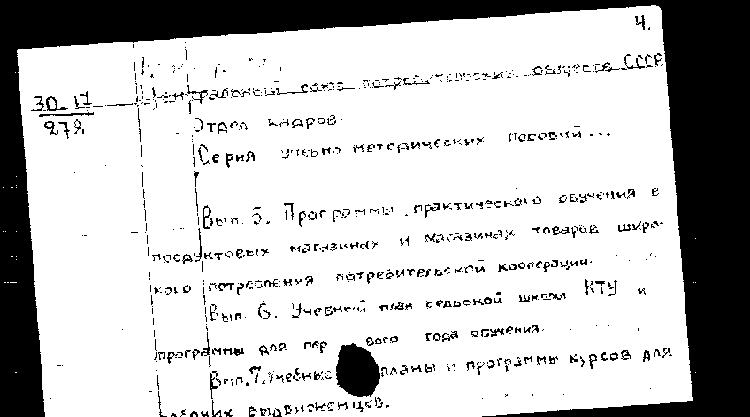 4.
30-17
278
Центральный союз потребительских обществ СССР
Отдел кадров.
Серия учебно методических пособий...
Вып. 5. Программы практического обучения в
продуктовых магазинах и магазинах товаров широ-
кого потребления потребительской кооперации.
Вып. 6. Учебный план сельской школы КТУ и
программы для первого года обучения.
Вып. 7. Учебные планы и программы курсов для
выдвиженцев.